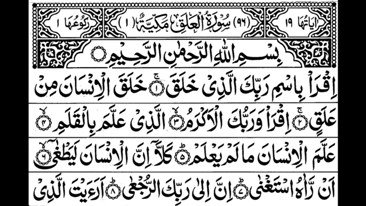 اٰيَاتُهَا ١٩ (٩٦) سُوْرَةُ الْعَلَقِ مَكِّيَّةٌ (١) رُكُوْعُهَا ١
بِسْمِ اللّٰهِ الرَّحْمٰنِ الرَّحِيْمِ
اِقْرَاْ بِاسْمِ رَبِّكَ الَّذِيْ خَلَقَ ۝١ خَلَقَ الْاِنْسَانَ مِنْ
عَلَقٍ ۝٢ اِقْرَاْ وَرَبُّكَ الْاَكْرَمُ ۝٣ الَّذِيْ عَلَّمَ بِالْقَلَمِ ۝٤
عَلَّمَ الْاِنْسَانَ مَا لَمْ يَعْلَمْ ۝٥ كَلَّاۤ اِنَّ الْاِنْسَانَ لَيَطْغٰۤى ۝٦
اَنْ رَّاٰهُ اسْتَغْنٰى ۝٧ اِنَّ اِلٰى رَبِّكَ الرُّجْعٰى ۝٨ اَرَءَيْتَ الَّذِيْ